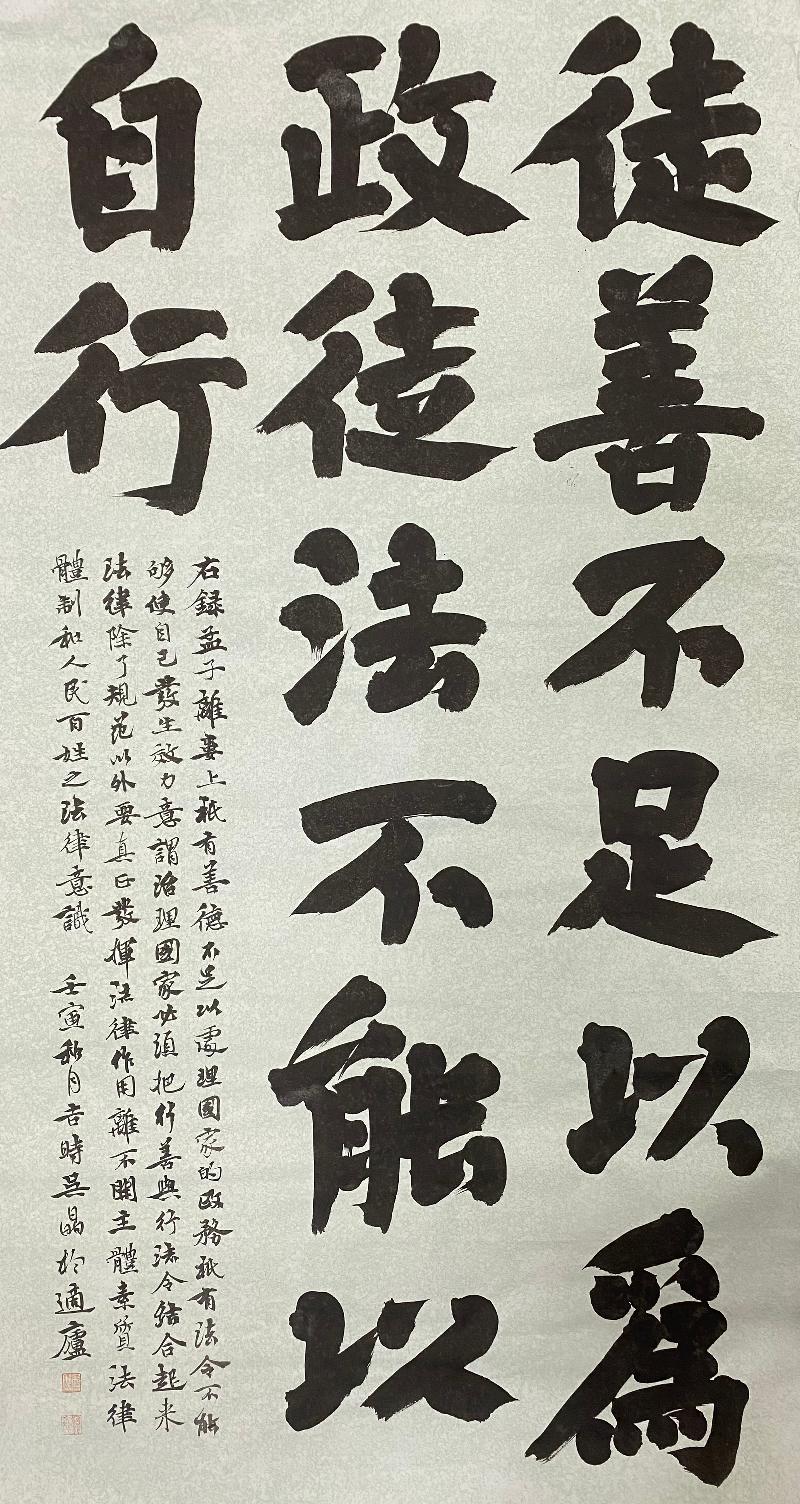 徒善不足以爲
政徒法不能以
自行
右録孟子離婁上祇有善德不足以處理國家的政務祇有法令不能
够使自己發生效力意謂治理國家必須把行善與行法令結合起来
法律除了規范以外要真正發揮法律作用離不開主體素質法律
體制和人民百姓之法律意識 壬寅秋月吉時吴晶於適廬